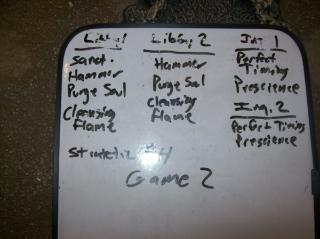 Libby 1
Sanct.
Hammer
Purge Soul
Cleansing
Flame
Libby 2
Hammer
Purge Soul
Cleansing
Flame
Inq. 1
Perfect
Timing
Prescience
Inq. 2
Perfect Timing
Prescience
Game 2